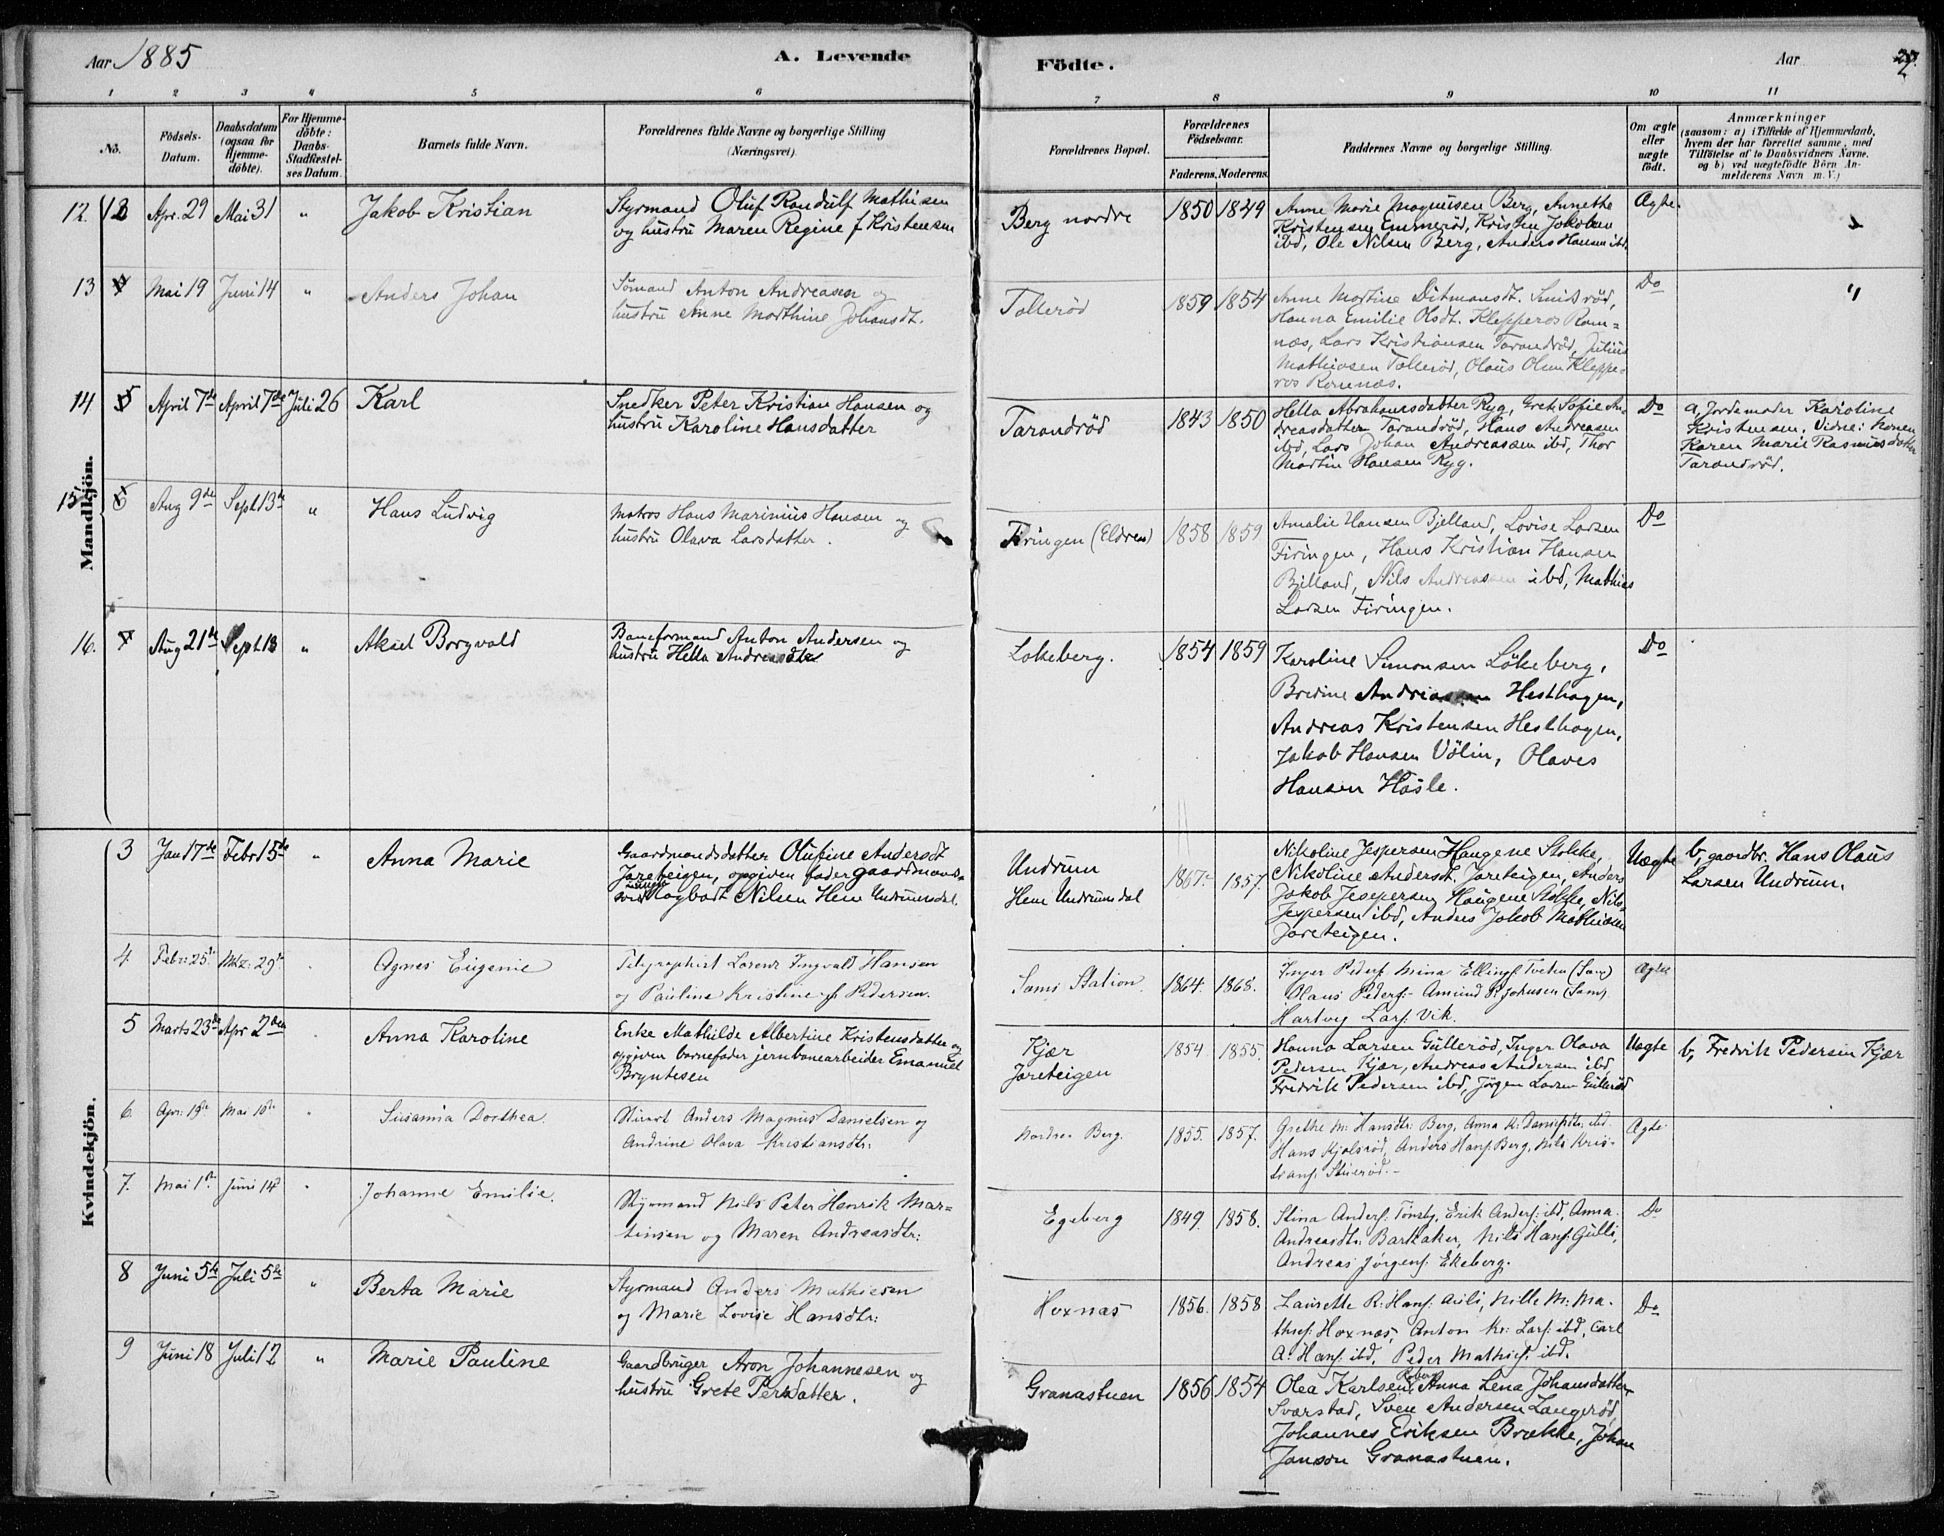 Aar 1885
A. Levende
Födte.
Aar
27.
1 2 3 4 5 6 7 8 9 10 11
No.
Födsels-
Datum.
Daabsdatum
(ogsaa for
Hjemme-
döbte).
For Hjemme-
döbte:
Daabs-
Stadfæstel-
ses Datum.
Barnets fulde Navn.
Forældrenes fulde Navne og borgerlige Stilling
(Næringsvei).
Forældrenes Bopæl.
Forældrenes
Födselsaar.
Faderens. Moderens.
Faddernes Navne og borgerlige Stilling.
Om ægte
eller
uægte
født.
Anmærkninger
(saasom: a) i Tilfælde af Hjemmedaab,
hvem der har forrettet samme, med
Tilføielse af to Daabsvidners Navne,
og b) ved uægtefödte Börn An-
melderens Navn m. V.)
Mandkjön.
12. Apr. 29 Mai 31 " Jakob Kristian
Styrmand Oluf Randulf Mathisen
og hustru Maren Regine f Kristensen
Berg nordre 1850 1849
Anne Marie Magnusen Berg, Annette
Kristensen Emmerød, Kristen Jakobsen
ibd, Ole Nilsen Berg, Anders Hansen ibd.
Ægte. "
13 Mai 19 Juni 14 " Anders Johan
Sømand Anton Andreasen og
hustru Anne Marthine Johansdt.
Tollerød 1859 1854
Anne Martine Ditmansdt. Smidsrød,
Hanna Emilie Olsdt. Klepperos Ram=
næs, Lars Kristiansen Tarandrød, Julius
Mathiasen Tollerød, Olaus Olsen Kleppe-
ros Ramnæs.
Do "
14 5 April 7de April 7de Juli 26 Karl
Snedker Peter Kristian Hansen og
hustru Karoline Hansdatter
Tarandrød 1843 1850
Hella Abrahamsdatter Ryg, Grete Sofie An-
dreasdatter Tarandrød, Hans Andreasen
ibd, Lars Johan Andreasen ibd, Thor
Martin Hansen Ryg.
Do
a, Jordemoder Karoline
Kristensen. Vidne: konen
Karen Marie Rasmusdatter
Tarandrød.
15 6 Aug 9de Sept 13de " Hans Ludvig
Matros Hans Marinius Hansen og
hustru Olava Larsdatter.
Firingen (Eldren) 1858 1859
Amalie Hansen Bjelland, Lovise Larsen
Firingen, Hans Kristian Hansen
Bjelland, Nils Andreasen ibd, Mathias
Larsen Firingen.
Do
16. 7 Aug 21de Sept 13 " Aksel Borgvald
Baneformand Anton Andersen og
hustru Hella Andreasdtr
Lokeberg. 1854 1859
Karoline Simonsen Lökeberg,
Bredine Andreassen Hesthagen,
Andreas Kristensen Hesthagen,
Jakob Hansen Völin, Olaves
Hansen Hasle.
Do
Kvindekjön.
3 Jan 17de Febr 15de " Anna Marie
Gaardmandsdatter Olufine Andersdt
Jareteigen, opgiven fader gaardmands-
søn Hagbart Nilsen Hem Undrumsdal.
Undrum
Hem Undrumsdal
1867. 1857.
Nikoline Jespersen Haugene Stokke,
Nikoline Andersdt. Jareteigen, Anders
Jakob Jespersen Haugene Stokke, Nils
Jespersen ibd, Anders Jakob Mathiasen
Jareteigen.
Uægte
b, gaardbr. Hans Olaus
Larsen Undrum.
4. Febr: 25de Mrz: 29de " Agnes Eugenie
Telegraphist Lorenz Ingvald Hansen
og Pauline Kristine f. Pedersen.
Sems Station. 1864. 1868.
Inger Peders: Mina Ellings: Tveten (Sem)
Olaus Peders: Amund P. Johnsen (Sem)
Hartvig Lars: Vik.
Ægte
5 Marts 23de Apr 2den " Anna Karoline
Enke Mathilde Albertine Kristensdatter og
opgiven barnefader jernbanearbeider Emanuel
Bryntesen
Kjær
Jareteigen
1854. 1855.
Hanna Larsen Gullerød, Inger Olava
Pedersen Kjær, Andreas Andersen ibd
Fredrik Pedersen ibd, Jørgen Larsen Gullerød
Uægte
b, Fredrik Pedersen Kjær
6. Apr: 19de Mai 10de " Susanna Dorthea.
Stuert Anders Magnus Danielsen og
Andrine Olava Kristiansdtr:
Nordre Berg. 1855. 1857.
Grethe M: Hansdtr: Berg, Anna K: Danielsdtr: ibd.
Hans Kjolsrød, Anders Hans: Berg, Nils Kris-
tians: Stuerød.-
Ægte.
7. Mai 1ste Juni 14de " Johanne Emilie.
Styrmand Nils Peter Henrik Mar=
tinsen og Maren Andreasdtr:
Egeberg 1849. 1858.
Stina Anders: Tønsbg, Erik Anders: ibd, Anna
Andreasdtr: Barkaker, Nils Hans: Gulli,
Andreas Jørgens: Ekeberg.
Do
8 Juni 5te Juli 5te " Berta Marie
Styrmand Anders Mathiesen
og Marie Lovise Hansdtr:
Hoxnæs 1856. 1858
Laurette R: Hans: Auli, Mille M: Ma-
thies: Hoxnæs, Anton Kr: Lars: ibd, Carl
A: Hans: ibd, Peder Mathies: ibd.
Do
9 Juni 18 Juli 12 " Marie Pauline
Gaardbruger Aron Johannesen og
hustru Grete Persdatter.
Granastuen 1856 1854
Olea Karlsen, Anna Lena Johansdatter
Svarstad, Sven Andersen Langerød,
Johannes Eriksen Brække, Johan
Jansson Granastuen.